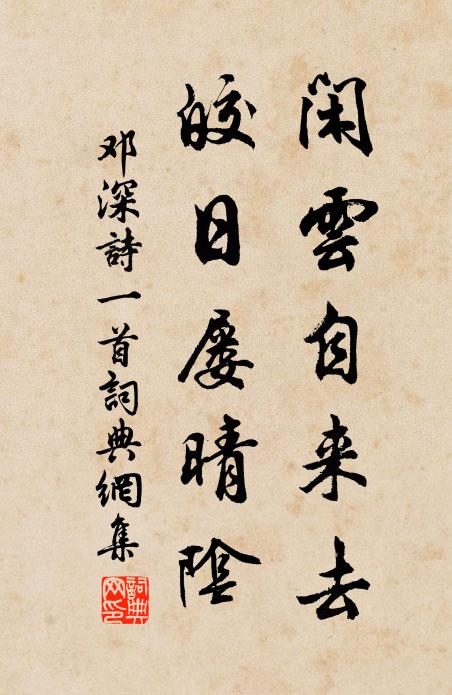 闲雲自来去
皎日屡晴陰
邓深詩一首詞典網集
詞典
网印